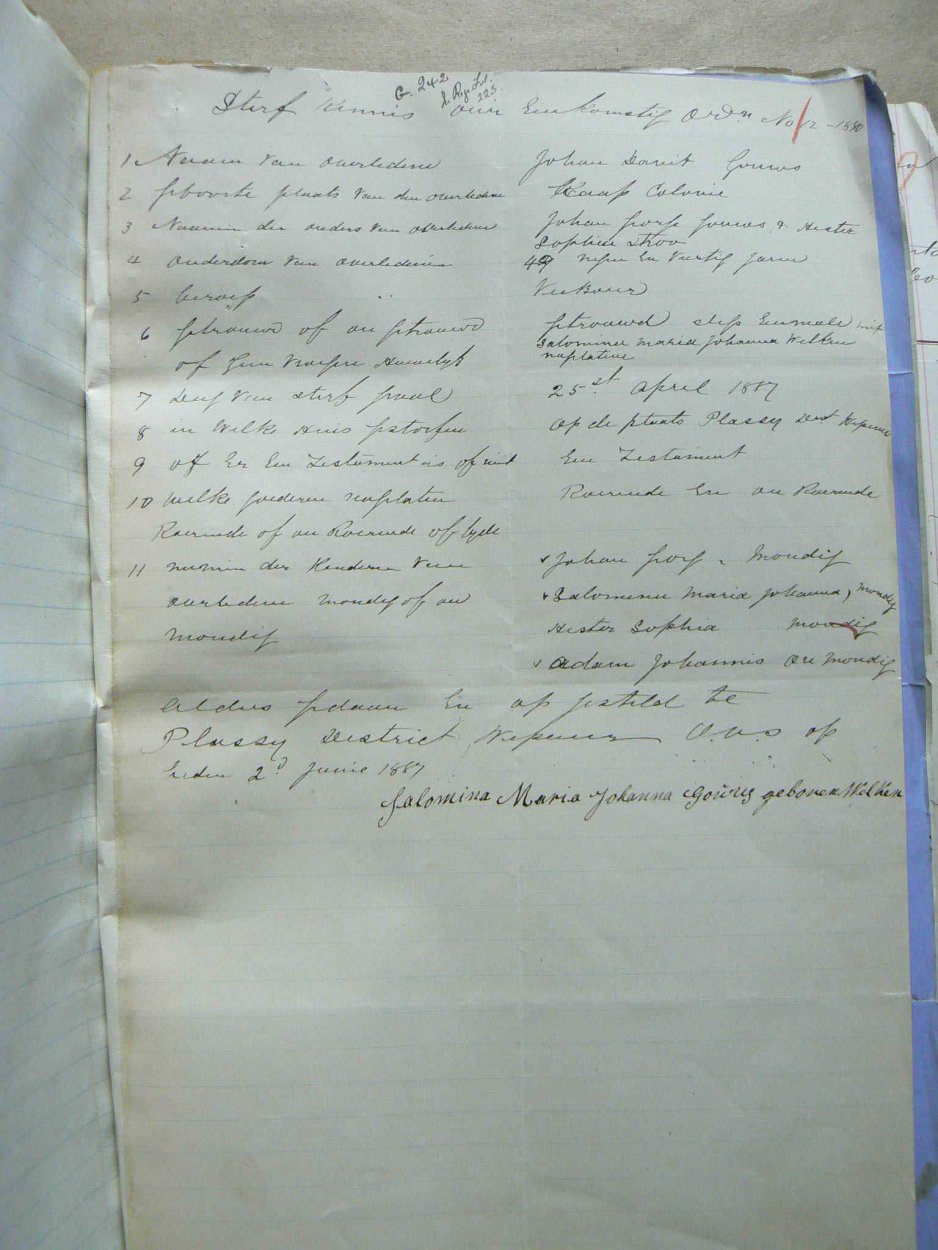 G. 242
223.
Sterf Kennis over Eenkomstig Ordn No 12 - 1880
1 Naam van overledene Johan Davit Gouws
2 geboorte plaats van den overledene Kaap Colonie
3 Naamen der ouders van overledene Johan Jorg Gouws & Hester
Sophia
4 ouderdom van overledene 49 negen en Veertig Jaren
5 beroep " Veeboer
6 getrouwd of on getrouwd getrouwd slegs Eenmaal met
Salomina Maria Johanna Wilken
of Een Vroegere Huwelyk nagelaten
7 Dag van sterf geval 25st April 1887
8 in Welke Huis gestorfen op de plaats Plassy Dist Wepener
9 of Er Een Testament is of niet Een Testament
10 Welke goederen nagelaten Roerende En on Roerende
Roerende of on Roerende of byde
11 namen der Kenderen van Johan Jorg Mondig
overledene mondig of on Salomina Maria Johanna, Mondig
mondig Hester Sophia Mondig
Adam Johannis on Mondig
Aldus gedaan En op gesteld te
Plassy District Wepener O.V.S op
heden 2d Junie 1887
Salomina Maria Johanna Gouws geboren Wilken